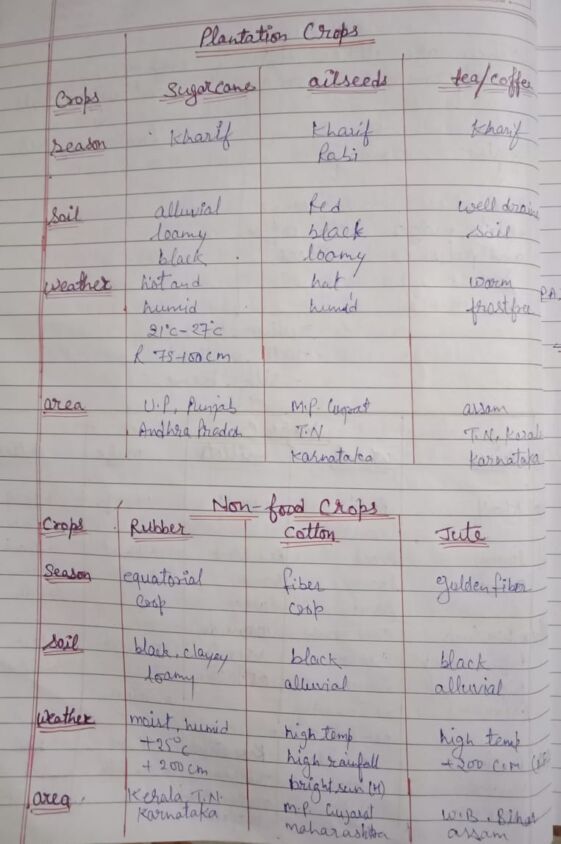 Plantation Crops
Crops Sugarcane oilseeds tea/coffee
Season Kharif Kharif Kharif
Rabi
Soil alluvial Red well drain
loamy black soil
black loamy
weather hot and hot, warm
humid humid frostfree
21°c-27°c
R 75-100cm
area U.P, Punjab M.P. Gujrat assam
Andhra Pradesh T.N T.N, Kerala
Karnataka Karnataka
Non-food Crops
Crops Rubber Cotton Jute
Season equatorial fiber golden fiber
crop crop
Soil black, clayey black black
loamy alluvial alluvial
Weather moist, humid high temp high temp
+25°c high rainfall +200 cm
+200cm bright sun (M)
area Kerala T.N. M.P. Gujarat W.B. Bihar
Karnataka maharashtra assam